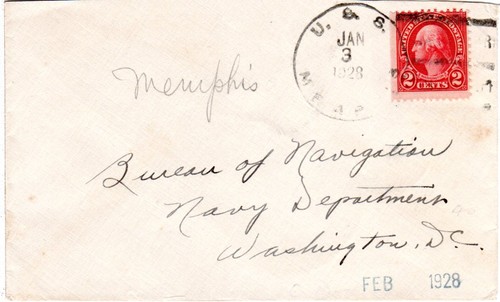 U. S. S.
JAN
3
1928
MEMP
UNITED STATES POSTAGE
2 CENTS 2
Memphis
Bureau of Navigation
Navy Department
Washington, D.C.
FEB 1928